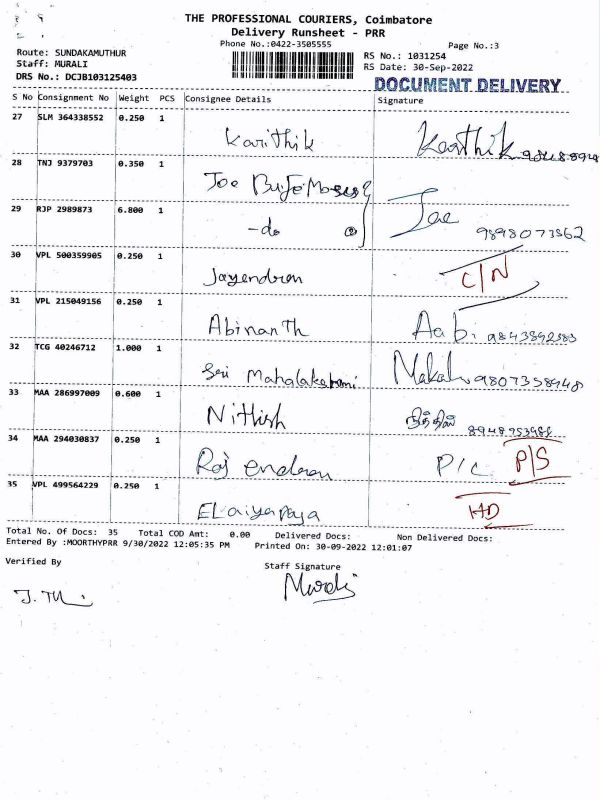 THE PROFESSIONAL COURIERS, Coimbatore
Delivery Runsheet - PRR
Phone No.:0422-3505555
Page No.:3
Route: SUNDAKAMUTHUR
Staff: MURALI
DRS No.: DCJB103125403
RS No.: 1031254
RS Date: 30-Sep-2022
DOCUMENT DELIVERY
S No Consignment No Weight PCS Consignee Details Signature
27 SLM 364338552 0.250 1 Karithik Karthik
28 TNJ 9379703 0.350 1 Joe
29 RJP 2989873 6.800 1 -do Joe 9898073562
30 VPL 500359905 0.250 1 Jayendran C/N
31 VPL 215049156 0.250 1 Abinanth Aab.
32 TCG 40246712 1.000 1 Sri
33 MAA 286997009 0.600 1 Nithish
34 MAA 294030837 0.250 1 Raj endran P/C P/S
35 VPL 499564229 0.250 1 Elaiyaraja HD
Total No. Of Docs: 35 Total COD Amt: 0.00 Delivered Docs: Non Delivered Docs:
Entered By :MOORTHYPRR 9/30/2022 12:05:35 PM Printed On: 30-09-2022 12:01:07
Verified By Staff Signature
Murali